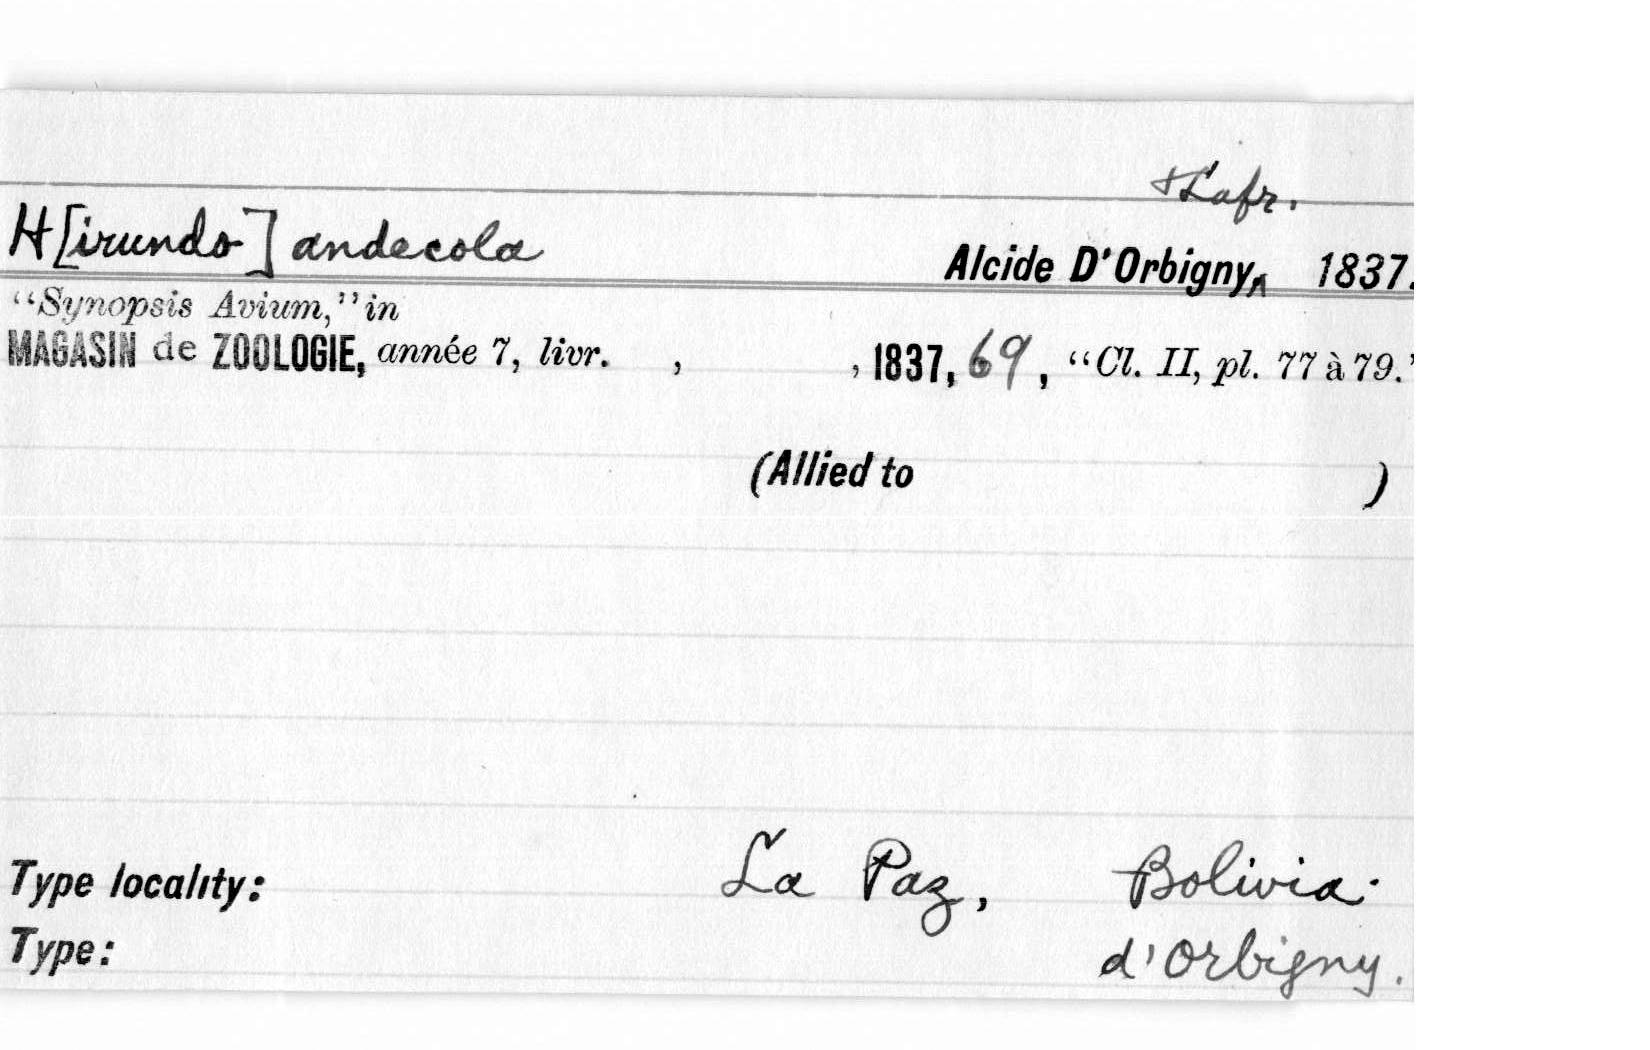 & Lafr.
H[irundo] andecola Alcide D'Orbigny,^ 1837.
“Synopsis Avium,” in
MAGASIN de ZOOLOGIE, année 7, livr. , , 1837, 69, “Cl. II, pl. 77 à 79.”
(Allied to )
Type locality: La Paz, Bolivia.
Type: d'Orbigny.